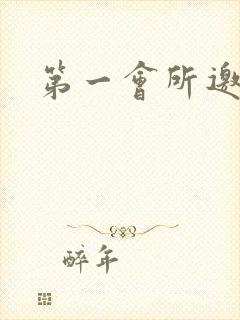 第一會所邀
醉年